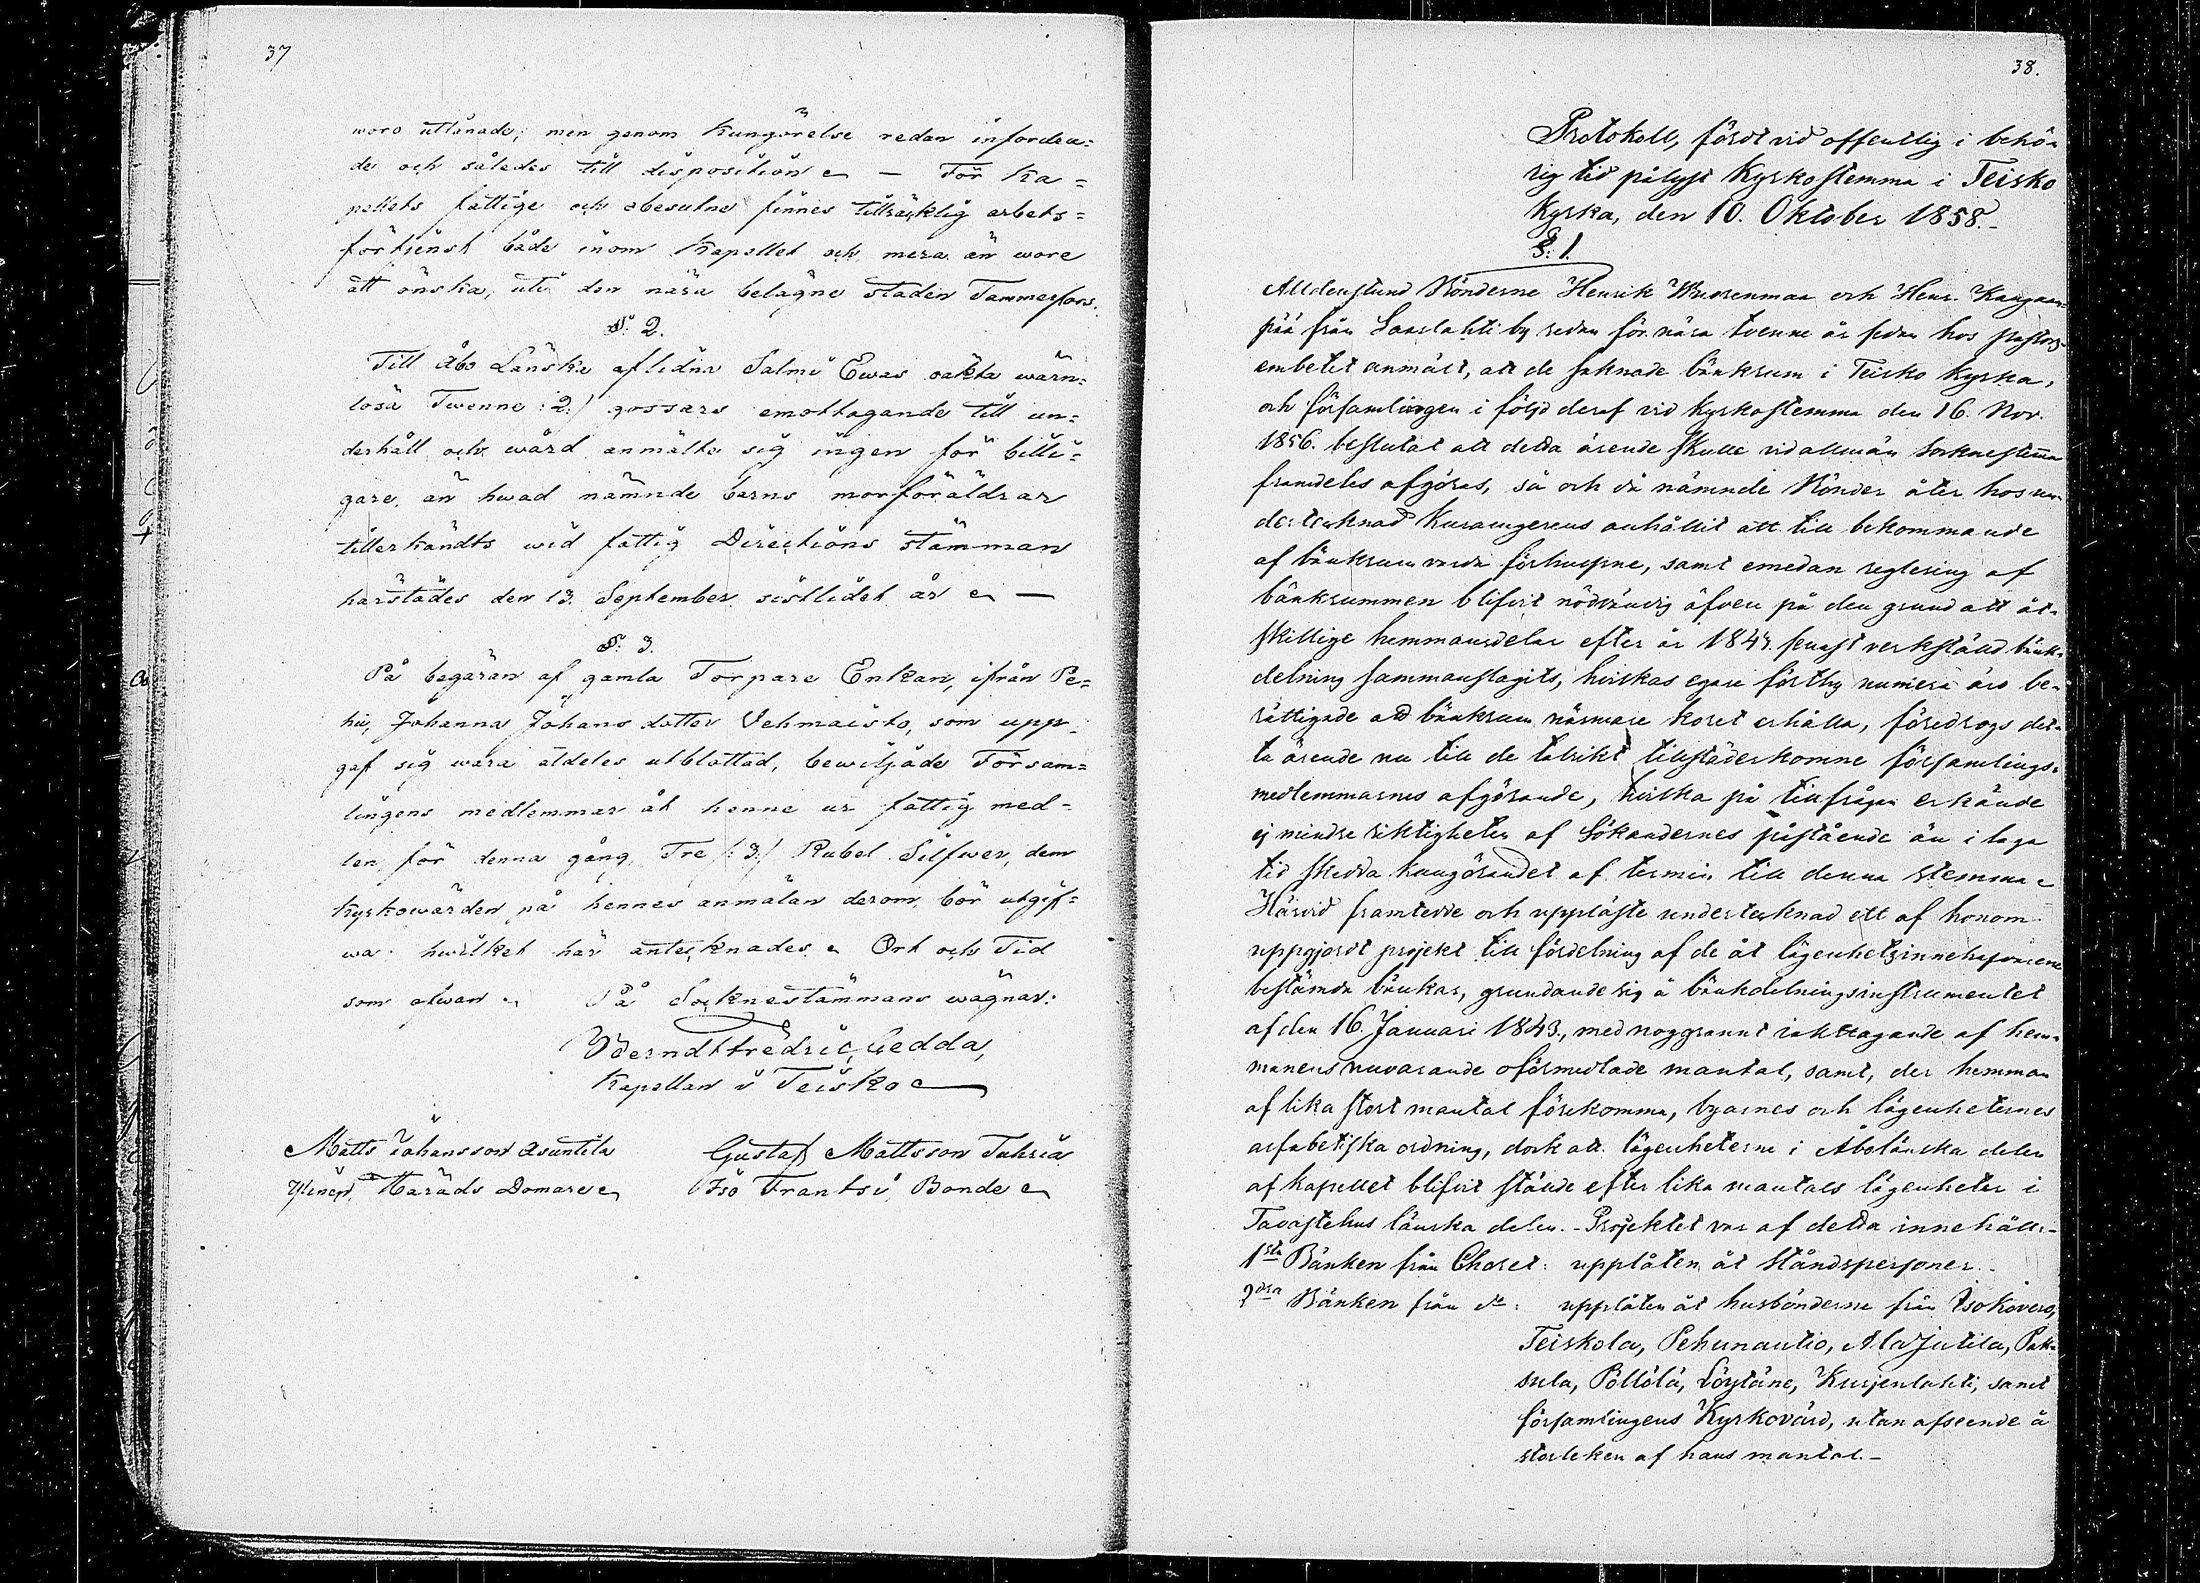 37
woro utlånade; men genom Kungörelse redan infordra=
de och således till disposition. — För Ka=
pellets fattige och obesutne finnes tillräcklig arbets=
förtjenst både inom Kapellet och mera än wore
att önska, uti den nära belägne staden Tammerfors.
§: 2.
Till Åbo Länske aflidna Salmi Ewas oäkta wärn=
lösa Twenne /:2:/ gossars emottagande till un=
derhåll och wård anmälte sig ingen för billi=
gare, än hwad nämnde barns morföräldrar
tillerkändts wid fattig Directions stämman
härstädes den 13. September sistlidet år —
§: 3.
På begäran af gamla Torpare Enkan, ifrån Pe=
hu, Johanna Johans dotter Vehmaisto, som upp=
gaf sig wara aldeles utblottad, bewiljade Försam=
lingens medlemmar åt henne ur fattig med=
len för denna gång Tre /:3:/ Rubel Silfwer, dem
Kyrkowärden på hennes anmälan derom bör utgif=
wa hwilket här antecknades. Ort och Tid
som ofwan. På Socknestämmans wägnar:
Berndt Fredric Gedda,
Kapellan i Teisko
Matts Johansson Asuntila Gustaf Mattsson Tuhria
Häräds Domare Iso Frantsi Bonde
38.
Protokoll, fördt vid offentlig i behö-
rig tid pålyst Kyrkostemma i Teisko
Kyrka, den 10. Oktober 1858.-
§: 1.
Alldenstund Bönderne Henrik Wuorenmaa och Henr. Kangaan-
pää från Laalahti by redan för nära tvenne år sedan hos pastors-
embetet anmält, att de saknade bänkrum i Teisko Kyrka,
och församlingen i följd deraf vid kyrkostemma den 16. Nov.
1856. beslutat att detta ärende skulle vid allmän Socknestemma
framdeles afgöras, så och då nämnde Bönder åter hos un-
dertecknad Kurangerens anhållit att till bekommande
af bänkrum varda förhulpne, samt emedan reglering af
bänkrummen blifvit nödvändig äfven på den grund att åt-
skillige hemmansdelar efter år 1843. senast verkställd bänk-
delning sammanslagits, hvilkas egare förthy numera äro be-
rättigade att bänkrum närmare koret erhålla, föredrogs det-
ta ärende nu till de talrikt tillstädeskomne församlings-
medlemmarnes afgörande, hvilka på tillfrågan erkände
ej mindre riktigheten af Sökandernes påstående än i laga
tid skedda kungörandet af termin till denna stemma.
Härvid framtedde och uppläste undertecknad ett af honom
uppgjordt projekt till fördelning af de åt lägenhetsinnehafvarene
bestämda bänkar, grundande sig å bänkdelningsinstrumentet
af den 16. Januari 1843., med noggrannt iakttagande af hem-
manens nuvarande oförmedlade mantal, samt, der hemman
af lika stort mantal förekomma, byarnes och lägenheternes
alfabetiska ordning, dock att lägenheterne i Åbolänska delen
af kapellet blifvit stälde efter lika mantals lägenheter i
Tavastehus länska delen. - Projektet var af detta innehåll: -
1sta Bänken från Choret: upplåten åt Ståndspersoner. -
2dra Bänken från do: upplåten åt husbönderne från Isokovero,
Teiskola, Pehunautio, Ala Jutila, Pak-
sula, Pöllölä, Löytäne, Kurjenlahti, samt
församlingens Kyrkovärd, utan afseende å
storleken af hans mantal. -